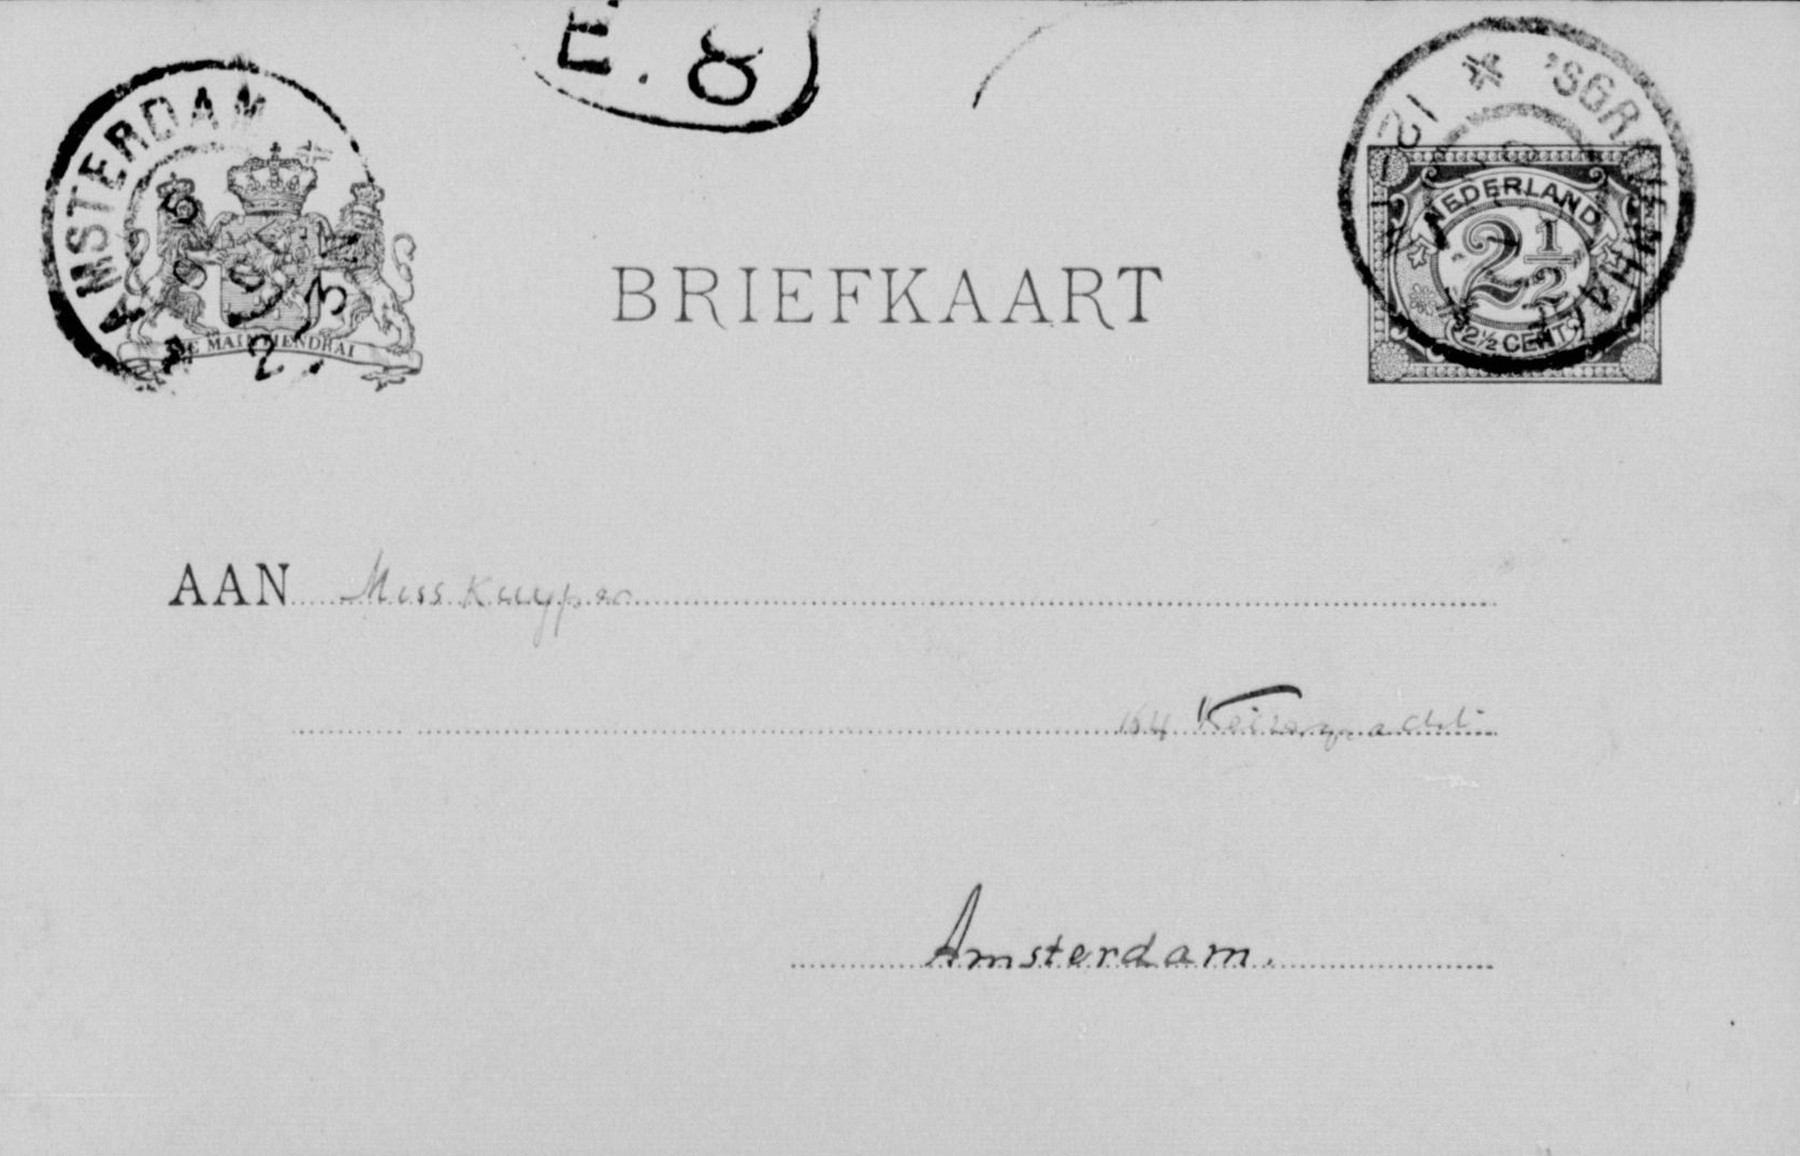 E. 8
AMSTERDAM
'SGRAVENHAGE
NEDERLAND
2 1/2
2½ CENT
JE MAINTIENDRAI
BRIEFKAART
AAN Miss Kuyper
164 Keizersgracht
Amsterdam.